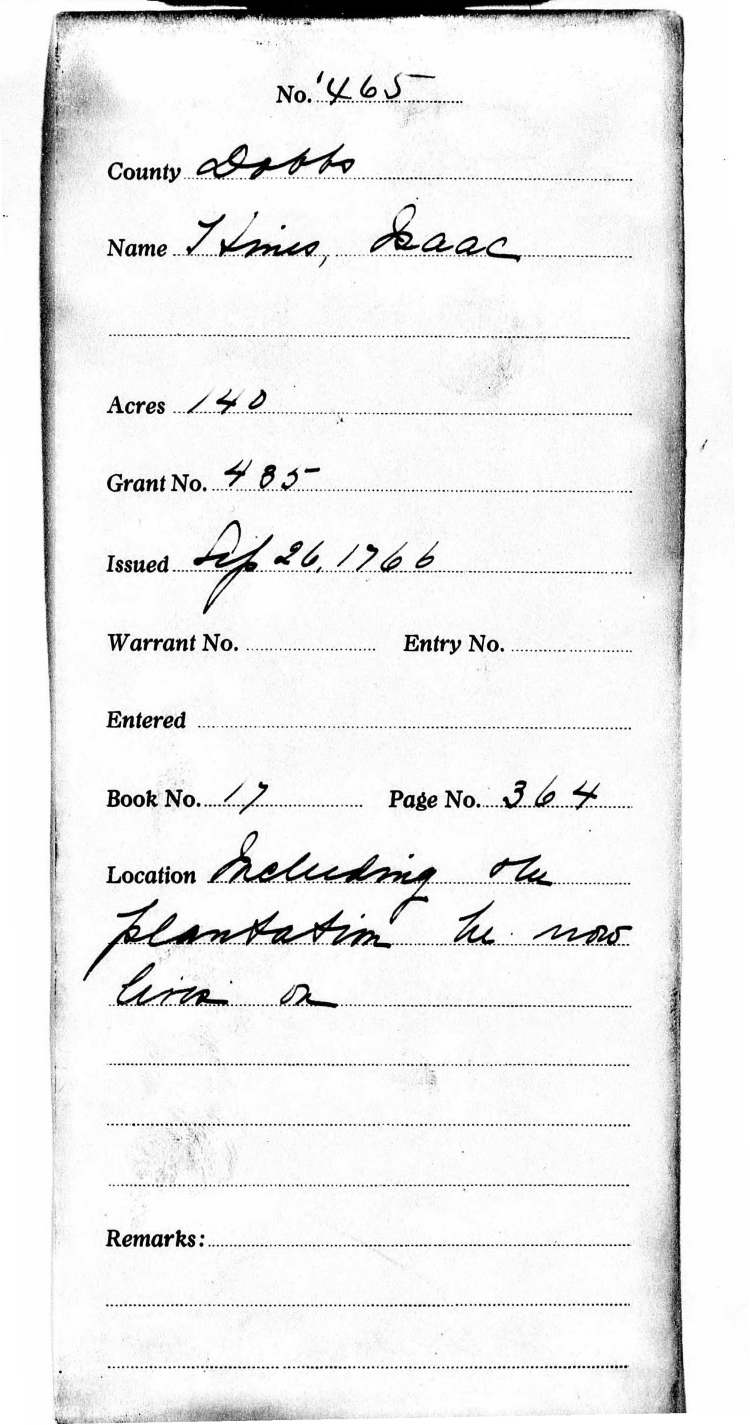 No. 465
County Dobbs
Name Hines, Isaac
Acres 140
Grant No. 485
Issued Sep 26, 1766
Warrant No. Entry No.
Entered
Book No. 17 Page No. 364
Location Including the
plantation he now
lives on
Remarks: